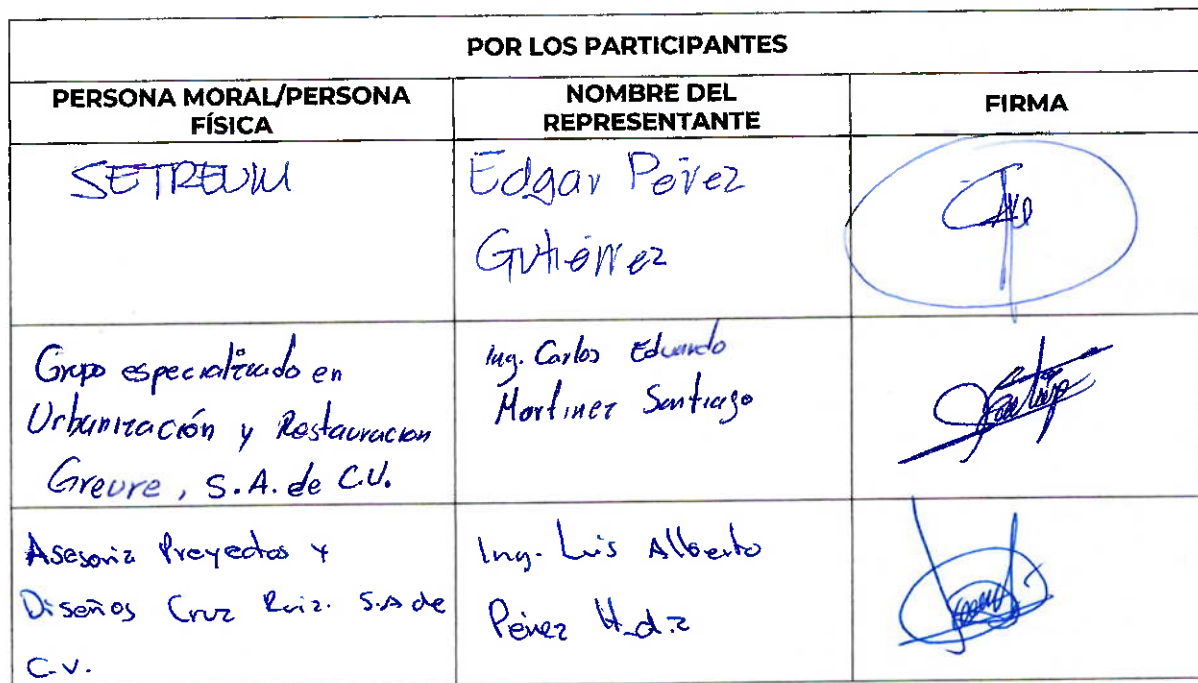 POR LOS PARTICIPANTES
PERSONA MORAL/PERSONA
FÍSICA
NOMBRE DEL
REPRESENTANTE
FIRMA
SETREUM
Edgar Pérez
Gutiérrez
Grupo especializado en
Urbanización y Restauracion
Greure, S.A. de C.V.
Ing. Carlos Eduardo
Martinez Santiago
Asesoria Proyectos y
Diseños Cruz Ruiz. S.A de
C.V.
Ing. Luis Alberto
Pérez